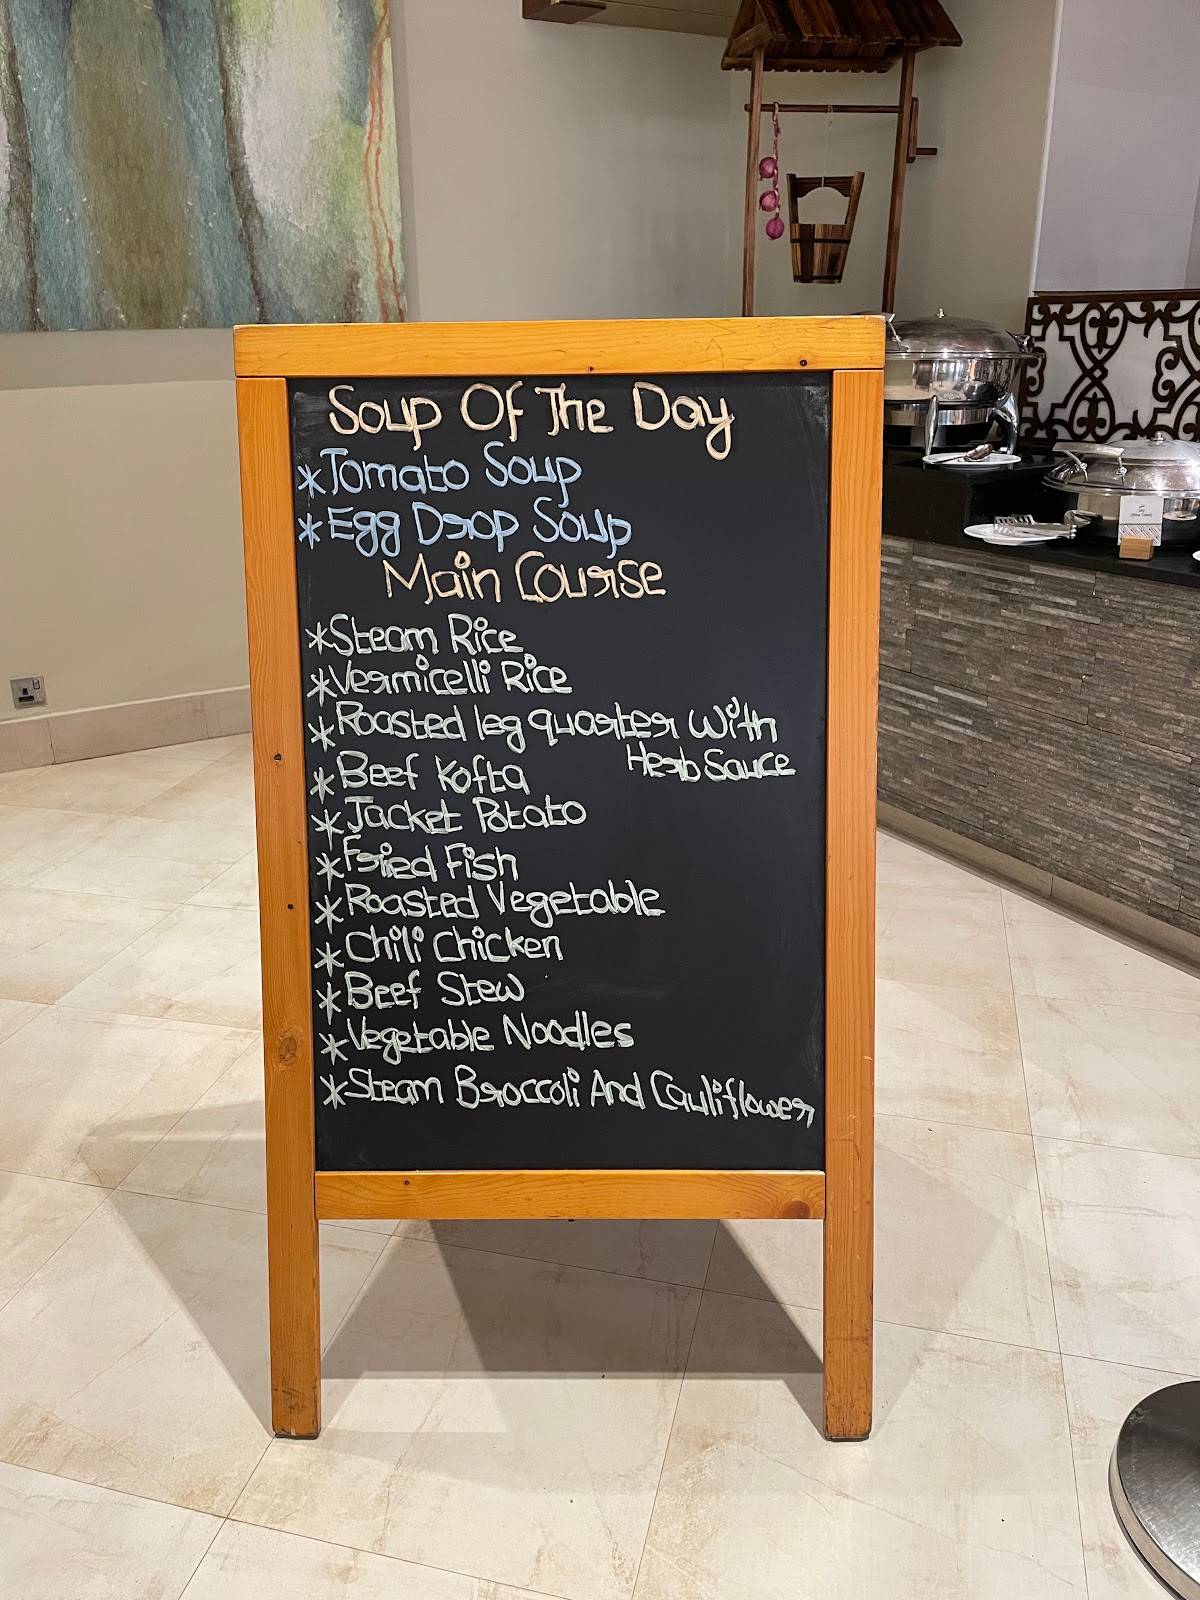 Soup Of The Day
*Tomato Soup
*Egg Drop Soup
Main Course
*Steam Rice
*Vermicelli Rice
*Roasted leg quarter With
Herb Sauce
*Beef Kofta
*Jacket Potato
*Fried Fish
*Roasted Vegetable
*Chili Chicken
*Beef Stew
*Vegetable Noodles
*Steam Broccoli And Cauliflower